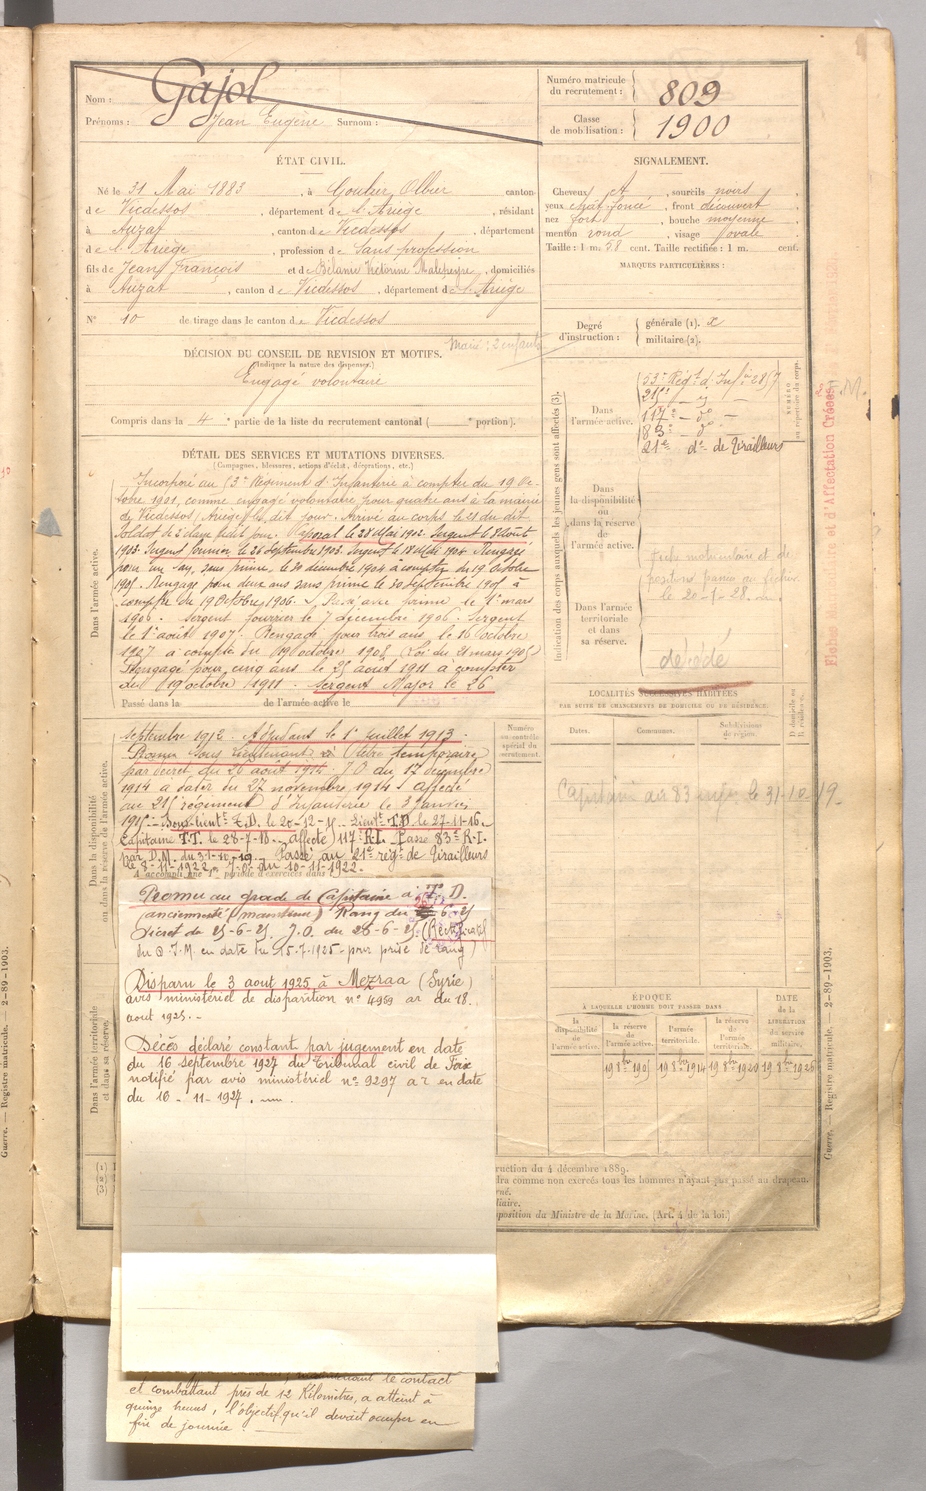 Nom : Gajol
Prénoms : Jean Eugène Surnom :
Numéro matricule du recrutement : 809
Classe de mobilisation : 1900
ÉTAT CIVIL.
Né le 31 Mai 1883, à Goulier Olbier canton
de Vicdessos, département de l'Ariège, résidant
à Auzat, canton de Vicdessos, département
de l'Ariège, profession de Sans profession
fils de Jean François et de Mélanie Victorine, domiciliés
à Auzat, canton de Vicdessos, département de l'Ariège
N° 10 de tirage dans le canton de Vicdessos
Marié : 2 enfants
SIGNALEMENT.
Cheveux et, sourcils noirs
yeux chat. foncé, front découvert
nez fort, bouche moyenne
menton rond, visage ovale
Taille : 1 m. 58 cent. Taille rectifiée : 1 m. cent.
MARQUES PARTICULIÈRES :
Degré d'instruction : générale (1). 2
militaire (2).
DÉCISION DU CONSEIL DE REVISION ET MOTIFS.
(Indiquer la nature des dispenses.)
Engagé volontaire
Compris dans la 4e partie de la liste du recrutement cantonal ( e portion).
DÉTAIL DES SERVICES ET MUTATIONS DIVERSES.
(Campagnes, blessures, actions d'éclat, décorations, etc.)
Incorporé au Régiment d'Infanterie à compter du 19 Oc-
tobre 1901, comme engagé volontaire pour quatre ans à la mairie
de Vicdessos (Ariège) le dit jour. Arrivé au corps le 21 du dit
Soldat de 2e classe ledit jour. Caporal le 28 Mai 1902. Sergent le 8 août
1903. Sergent fourrier le 26 Septembre 1903. Sergent le 1904 Rengagé
pour un an, sans prime, le 30 décembre 1904 à compter du 19 Octobre
1905. Rengagé pour deux ans sans prime le 30 septembre 1905 à
compter du 19 Octobre 1906. avec prime le 1er mars
1906. Sergent fourrier le 7 décembre 1906. Sergent
le 1er août 1907. Rengagé pour trois ans le 16 octobre
1907 à compter du 19 Octobre 1908 (Loi du 21 mars 1905)
Rengagé pour cinq ans le 25 août 1911 à compter
du 19 octobre 1911. Sergent Major le 26
Passé dans la de l'armée active le
septembre 1912. Adjudant le 1er Juillet 1913.
Promu Sous Lieutenant à titre temporaire
par décret du 26 août 1914. JO du 17 décembre
1914 à dater du 27 novembre 1914. affecté
au 211 régiment d'Infanterie le 3 Janvier
1915. Sous-lieutt T.D. le 20-12-15. Lieutt T.D le 27-11-16.
Capitaine T.T. le 28-7-18. affecté 117e R.I. Passé 83e R.I.
par D.M. du 31-10-19. Passé au 21e régt de Tirailleurs
le 8-11-1922, J.O. du 10-11-1922.
Promu au grade de Capitaine à T. D.
(ancienneté maintenu) Rang du 6-25
Décret du 25-6-25. J.O. du 28-6-25. (Rectificatif
du @ J.M. en date du 15-7-1925 - pour prise de rang)
Disparu le 3 aout 1925 à Mezraa (Syrie)
avis ministériel de disparition n° 4959 ar du 18.
aout 1925. -
Décès déclaré constant par jugement en date
du 16 septembre 1927 du Tribunal civil de Foix
notifié par avis ministériel n° 9297 ar en date
du 10 - 11 - 1927.
le contact
et combattant près de 12 Kilomètres, a atteint à
quinze heures, l'objectif qu'il devait occuper en
fin de journée.
Dans l'armée active.
Dans la disponibilité
ou dans la réserve de l'armée active.
Dans l'armée territoriale
et dans sa réserve.
Indication des corps auxquels les jeunes gens sont affectés (3).
Dans l'armée active.
53e Régt d'Infie 2857
117e - do -
83e - do
21e do de Tirailleurs
Dans la disponibilité ou dans la réserve de l'armée active.
Dans l'armée territoriale et dans sa réserve.
fiche matriculaire et de
le 20-1-28.
décédé
Fiches Matricule et d'Affectation Créées
LOCALITÉS SUCCESSIVES HABITÉES
PAR SUITE DE CHANGEMENTS DE DOMICILE OU DE RÉSIDENCE.
Numéro au contrôle spécial du recrutement.
Dates. Communes. Subdivisions de région.
D domicile ou R résidence.
Capitaine au 83 infie le 31-10-19.
ÉPOQUE
À LAQUELLE L'HOMME DOIT PASSER DANS
la disponibilité de l'armée active. la réserve de l'armée active. l'armée territoriale. la réserve de l'armée territoriale.
DATE de la LIBÉRATION du service militaire.
19 8bre 1905 19 8bre 1914 19 8bre 1920 19 8bre 1926
ruction du 4 décembre 1889.
dra comme non exercés tous les hommes n'ayant pas passé au drapeau.
rné.
iliaire.
position du Ministre de la Marine. (Art. 4 de la loi.)
(1)
(2)
(3)
Guerre. — Registre matricule. — 2-89-1903.
Guerre. — Registre matricule. — 2-89-1903.